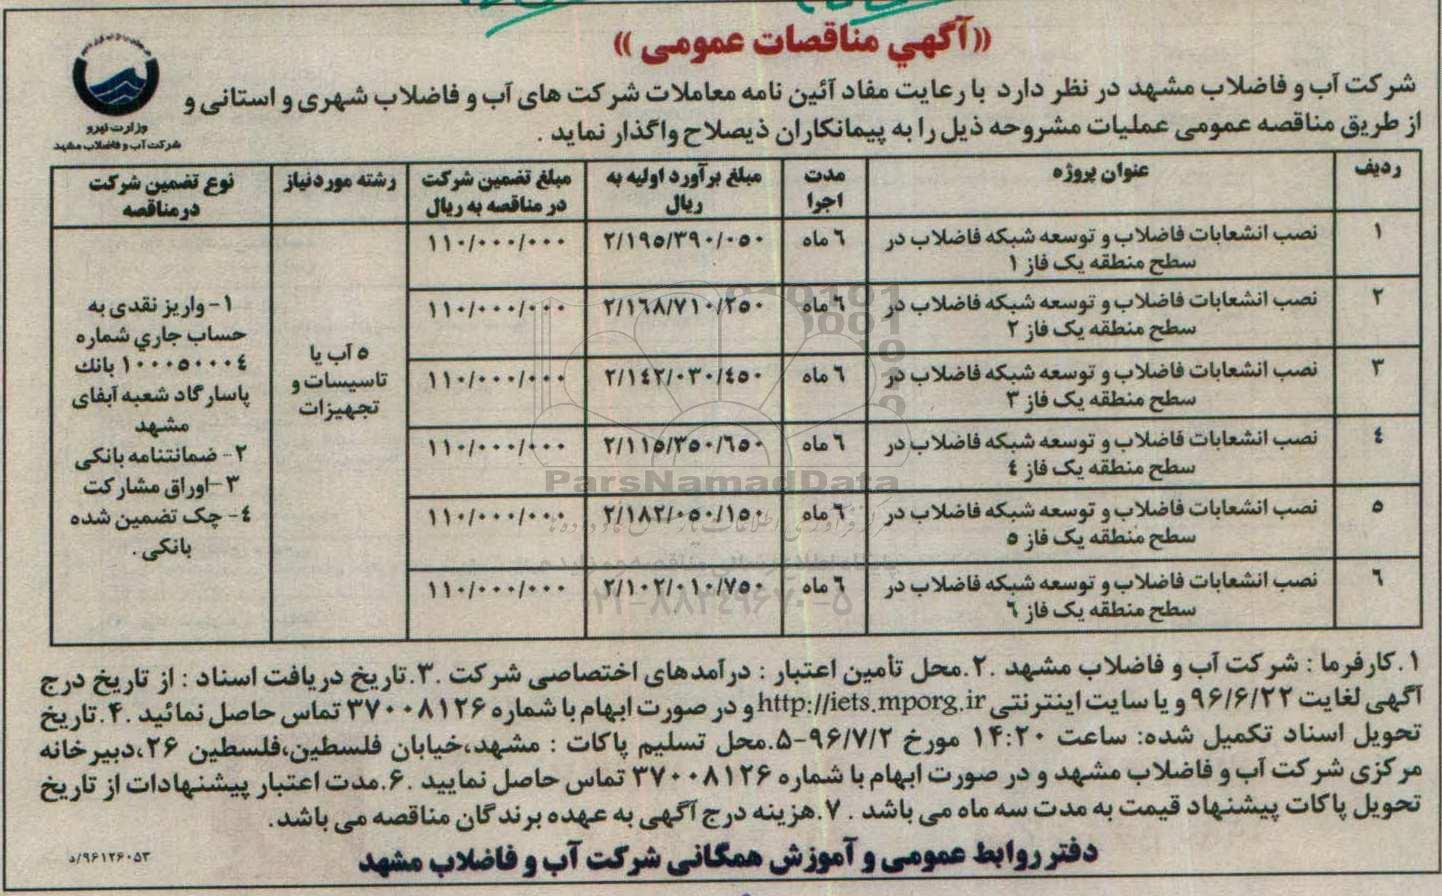 «آگهي مناقصات عمومی»
وزارت نیرو
شرکت آب و فاضلاب مشهد
شرکت آب و فاضلاب مشهد در نظر دارد با رعایت مفاد آئین نامه معاملات شرکت های آب و فاضلاب شهری و استانی و
از طریق مناقصه عمومی عملیات مشروحه ذیل را به پیمانکاران ذیصلاح واگذار نماید .
ردیف
عنوان پروژه
مدت
اجرا
مبلغ برآورد اولیه به
ریال
مبلغ تضمین شرکت
در مناقصه به ریال
رشته موردنیاز
نوع تضمین شرکت
درمناقصه
۱
نصب انشعابات فاضلاب و توسعه شبکه فاضلاب در
سطح منطقه یک فاز ۱
۶ ماه
۲/۱۹۵/۳۹۰/۰۵۰
۱۱۰/۰۰۰/۰۰۰
۲
نصب انشعابات فاضلاب و توسعه شبکه فاضلاب در
سطح منطقه یک فاز ۲
۶ ماه
۲/۱۶۸/۷۱۰/۲۵۰
۱۱۰/۰۰۰/۰۰۰
۳
نصب انشعابات فاضلاب و توسعه شبکه فاضلاب در
سطح منطقه یک فاز ۳
۶ ماه
۲/۱۴۲/۰۳۰/۴۵۰
۱۱۰/۰۰۰/۰۰۰
۴
نصب انشعابات فاضلاب و توسعه شبکه فاضلاب در
سطح منطقه یک فاز ۴
۶ ماه
۲/۱۱۵/۳۵۰/۶۵۰
۱۱۰/۰۰۰/۰۰۰
۵
نصب انشعابات فاضلاب و توسعه شبکه فاضلاب در
سطح منطقه یک فاز ۵
۶ ماه
۲/۱۸۲/۰۵۰/۱۵۰
۱۱۰/۰۰۰/۰۰۰
۶
نصب انشعابات فاضلاب و توسعه شبکه فاضلاب در
سطح منطقه یک فاز ۶
۶ ماه
۲/۱۰۲/۰۱۰/۷۵۰
۱۱۰/۰۰۰/۰۰۰
۵ آب یا
تاسیسات و
تجهیزات
۱- واریز نقدی به
حساب جاري شماره
۱۰۰۰۵۰۰۰۴ بانك
پاسارگاد شعبه آبفای
مشهد
۲- ضمانتنامه بانکی
۳-اوراق مشارکت
۴- چک تضمین شده
بانکی .
ParsNamadData
۰۲۱-۸۸۳۴۹۶۷۰-۵
۱.کارفرما : شرکت آب و فاضلاب مشهد .۲.محل تأمین اعتبار : درآمدهای اختصاصی شرکت .۳.تاریخ دریافت اسناد : از تاریخ درج
آگهی لغایت ۹۶/۶/۲۲ و یا سایت اینترنتی http://iets.mporg.ir و در صورت ابهام با شماره ۳۷۰۰۸۱۲۶ تماس حاصل نمائید .۴.تاریخ
تحویل اسناد تکمیل شده: ساعت ۱۴:۲۰ مورخ ۹۶/۷/۲-۵.محل تسلیم پاکات : مشهد،خیابان فلسطین،فلسطین ۲۶،دبیرخانه
مرکزی شرکت آب و فاضلاب مشهد و در صورت ابهام با شماره ۳۷۰۰۸۱۲۶ تماس حاصل نمایید .۶.مدت اعتبار پیشنهادات از تاریخ
تحویل پاکات پیشنهاد قیمت به مدت سه ماه می باشد . ۷.هزینه درج آگهی به عهده برندگان مناقصه می باشد.
دفتر روابط عمومی و آموزش همگانی شرکت آب و فاضلاب مشهد
۹۶۱۲۶۰۵۳/د